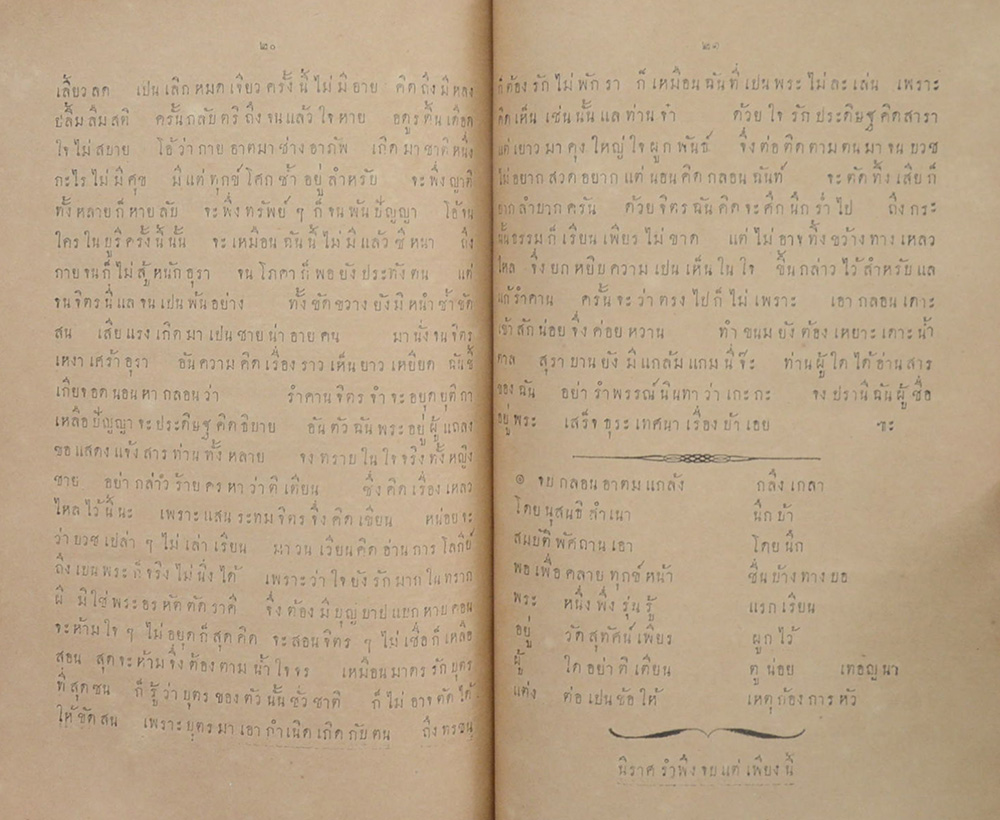 ๒๐
เลี้ยวลด เปนเลิกหมดเจียวครั้งนี้ไม่มีอาย คิดถึงมีหลง
ปลื้มลืมสติ ครั้นกลับตริถึงจนแล้วใจหาย อดูรดิ้นเดือด
ใจไม่สบาย โอ้ว่ากายอาตมาช่างอาภัพ เกิดมาชาติหนึ่ง
กะไรไม่มีศุข มีแต่ทุกข์โศกซ้ำอยู่ลำหรับ จะพึ่งญาติ
ทั้งหลายก็หายลับ จะพึ่งทรัพย์ ๆ ก็จนพ้นปัญญา โอ้จน
ใครในยุรีครั้งนี้นั้น จะเหมือนฉันนี้ไม่มีแล้วซิหนา ถึง
กายจนก็ไม่สู้หนักอุรา จนโภคาก็พอยังประทังตน แต่
จนจิตรนี่แลจนเปนพ้นอย่าง ทั้งขัดขวางยังมีหนำซ้ำขัด
สน เสียแรงเกิดมาเปนชายน่าอายคน มานั่งจนจิตร
เหงาเศร้าอุรา อันความคิดเรื่องราวเห็นยาวเหยียด ฉันขี้
เกียจอดนอนหากลอนว่า รำคานจิตรจำจะอยุดยุติกา
เหลือปัญญาจะประดิษฐคิดธิบาย อันตัวฉันพระอยู่ผู้แถลง
ขอแสดงแจ้งสารท่านทั้งหลาย จงทราบในใจจริงทั้งหญิง
ชาย อย่ากล่าวร้ายครหาว่าติเตียน ซึ่งคิดเรื่องเหลว
ไหลไว้นี้นะ เพราะแสนระทมจิตรจึ่งคิดเขียน หน่อยจะ
ว่าบวชเปล่า ๆ ไม่เล่าเรียน มาวนเวียนคิดอ่านการโลกีย์
ถึงเปนพระก็จริงไม่นิ่งได้ เพราะว่าใจยังรักมากในทราก
ผี มิใช่พระอรหัตตัดราคี จึ่งต้องมีบุญบาปแยกหาบคอน
จะห้ามใจ ๆ ไม่อยุดก็สุดคิด จะสอนจิตร ๆ ไม่เชื่อก็เหลือ
สอน สุดจะห้ามจึ่งต้องตามน้ำใจจร เหมือนมาตรรักบุตร
ที่สุดซน ก็รู้ว่าบุตรของตัวนั้นชั่วชาติ ก็ไม่อาจตัดได้
ให้ขัดสน เพราะบุตรมาเอากำเนิดเกิดกับตน ถึงทรชน
๒๑
ก็ต้องรักไม่พักรา ก็เหมือนฉันที่เปนพระไม่ละเล่น เพราะ
คิดเห็นเช่นนั้นแลท่านจำ ด้วยใจรักประดิษฐคิดสารา
แต่เยาวมาคุงใหญ่ใจผูกพันธ์ จึ่งต่อติดตามตนมาจนบวช
ไม่อยากสวดอยากแต่นอนคิดกลอนฉันท์ จะตัดทิ้งเสียก็
ยากลำบากครัน ด้วยจิตรฉันคิดจะศึกนึกร่ำไป ถึงกระ
นั้นธรรมก็เรียนเพียรไม่ขาด แต่ไม่อาจทิ้งขว้างทางเหลว
ไหล จึ่งยกหยิบความเปนเห็นในใจ ขึ้นกล่าวไว้สำหรับแล
แก้รำคาน ครั้นจะว่าตรงไปก็ไม่เพราะ เอากลอนเดาะ
เข้าสักน่อยจึ่งค่อยหวาน ทำขนมยังต้องเหยาะเดาะน้ำ
ตาล สุราบานยังมีแกล้มแกมนี่จ๊ะ ท่านผู้ใดได้อ่านสาร
ของฉัน อย่ารำพรรณ์นินทาว่าเกะกะ จงปรานีฉันผู้ชื่อ
อยู่พระ เสร็จธุระเทศนาเรื่องบ้าเอย ชะ
๏ จบกลอนอาตมแกลัง กลึงเกลา
โดยนุสนธิสำเนา นึกบ้า
สมบัติพัศถานเอา โดยนึก
พอเพื่อคลายทุกข์หน้า ชื่นบ้างทางบอ
พระ หนึ่งพึ่งรุ่นรู้ แรกเรียน
อยู่ วัดสุทัศน์เพียร ผูกไว้
ผู้ ใดอย่าติเตียน ตูน่อย เทอญนา
แต่ง ต่อเปนข้อให้ เหตุก้องการหัว
นิราศรำพึงจบแต่เพียงนี้